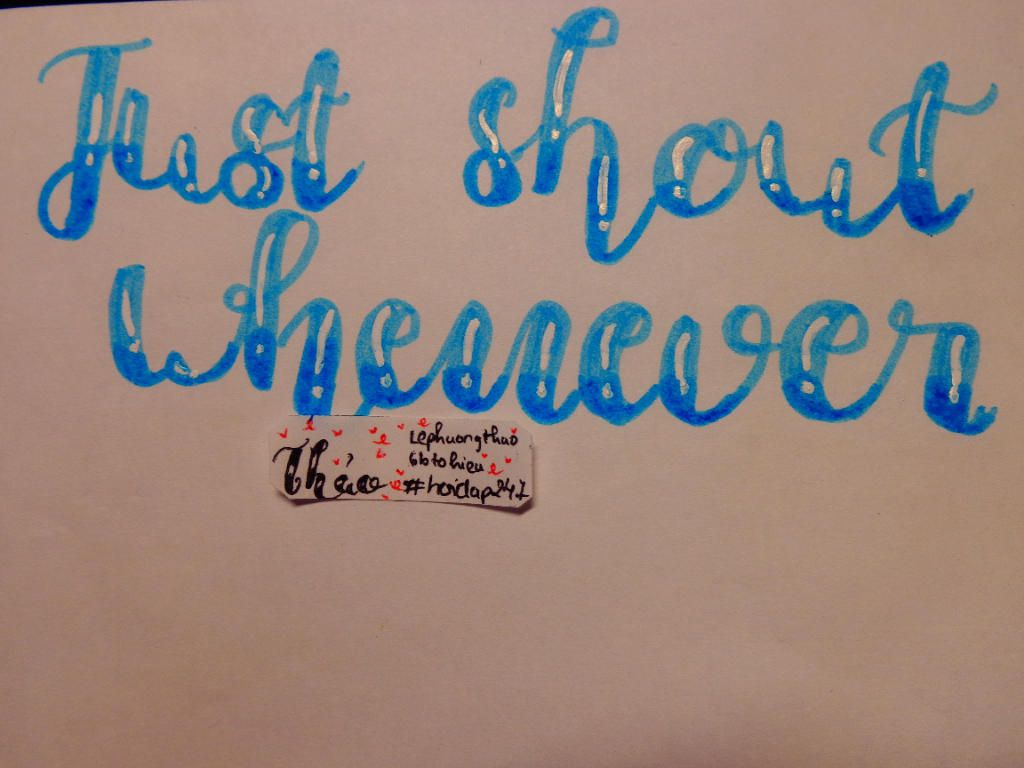 Just shout
whenever
Lephuongthao
6b tohieu
#hoidap247